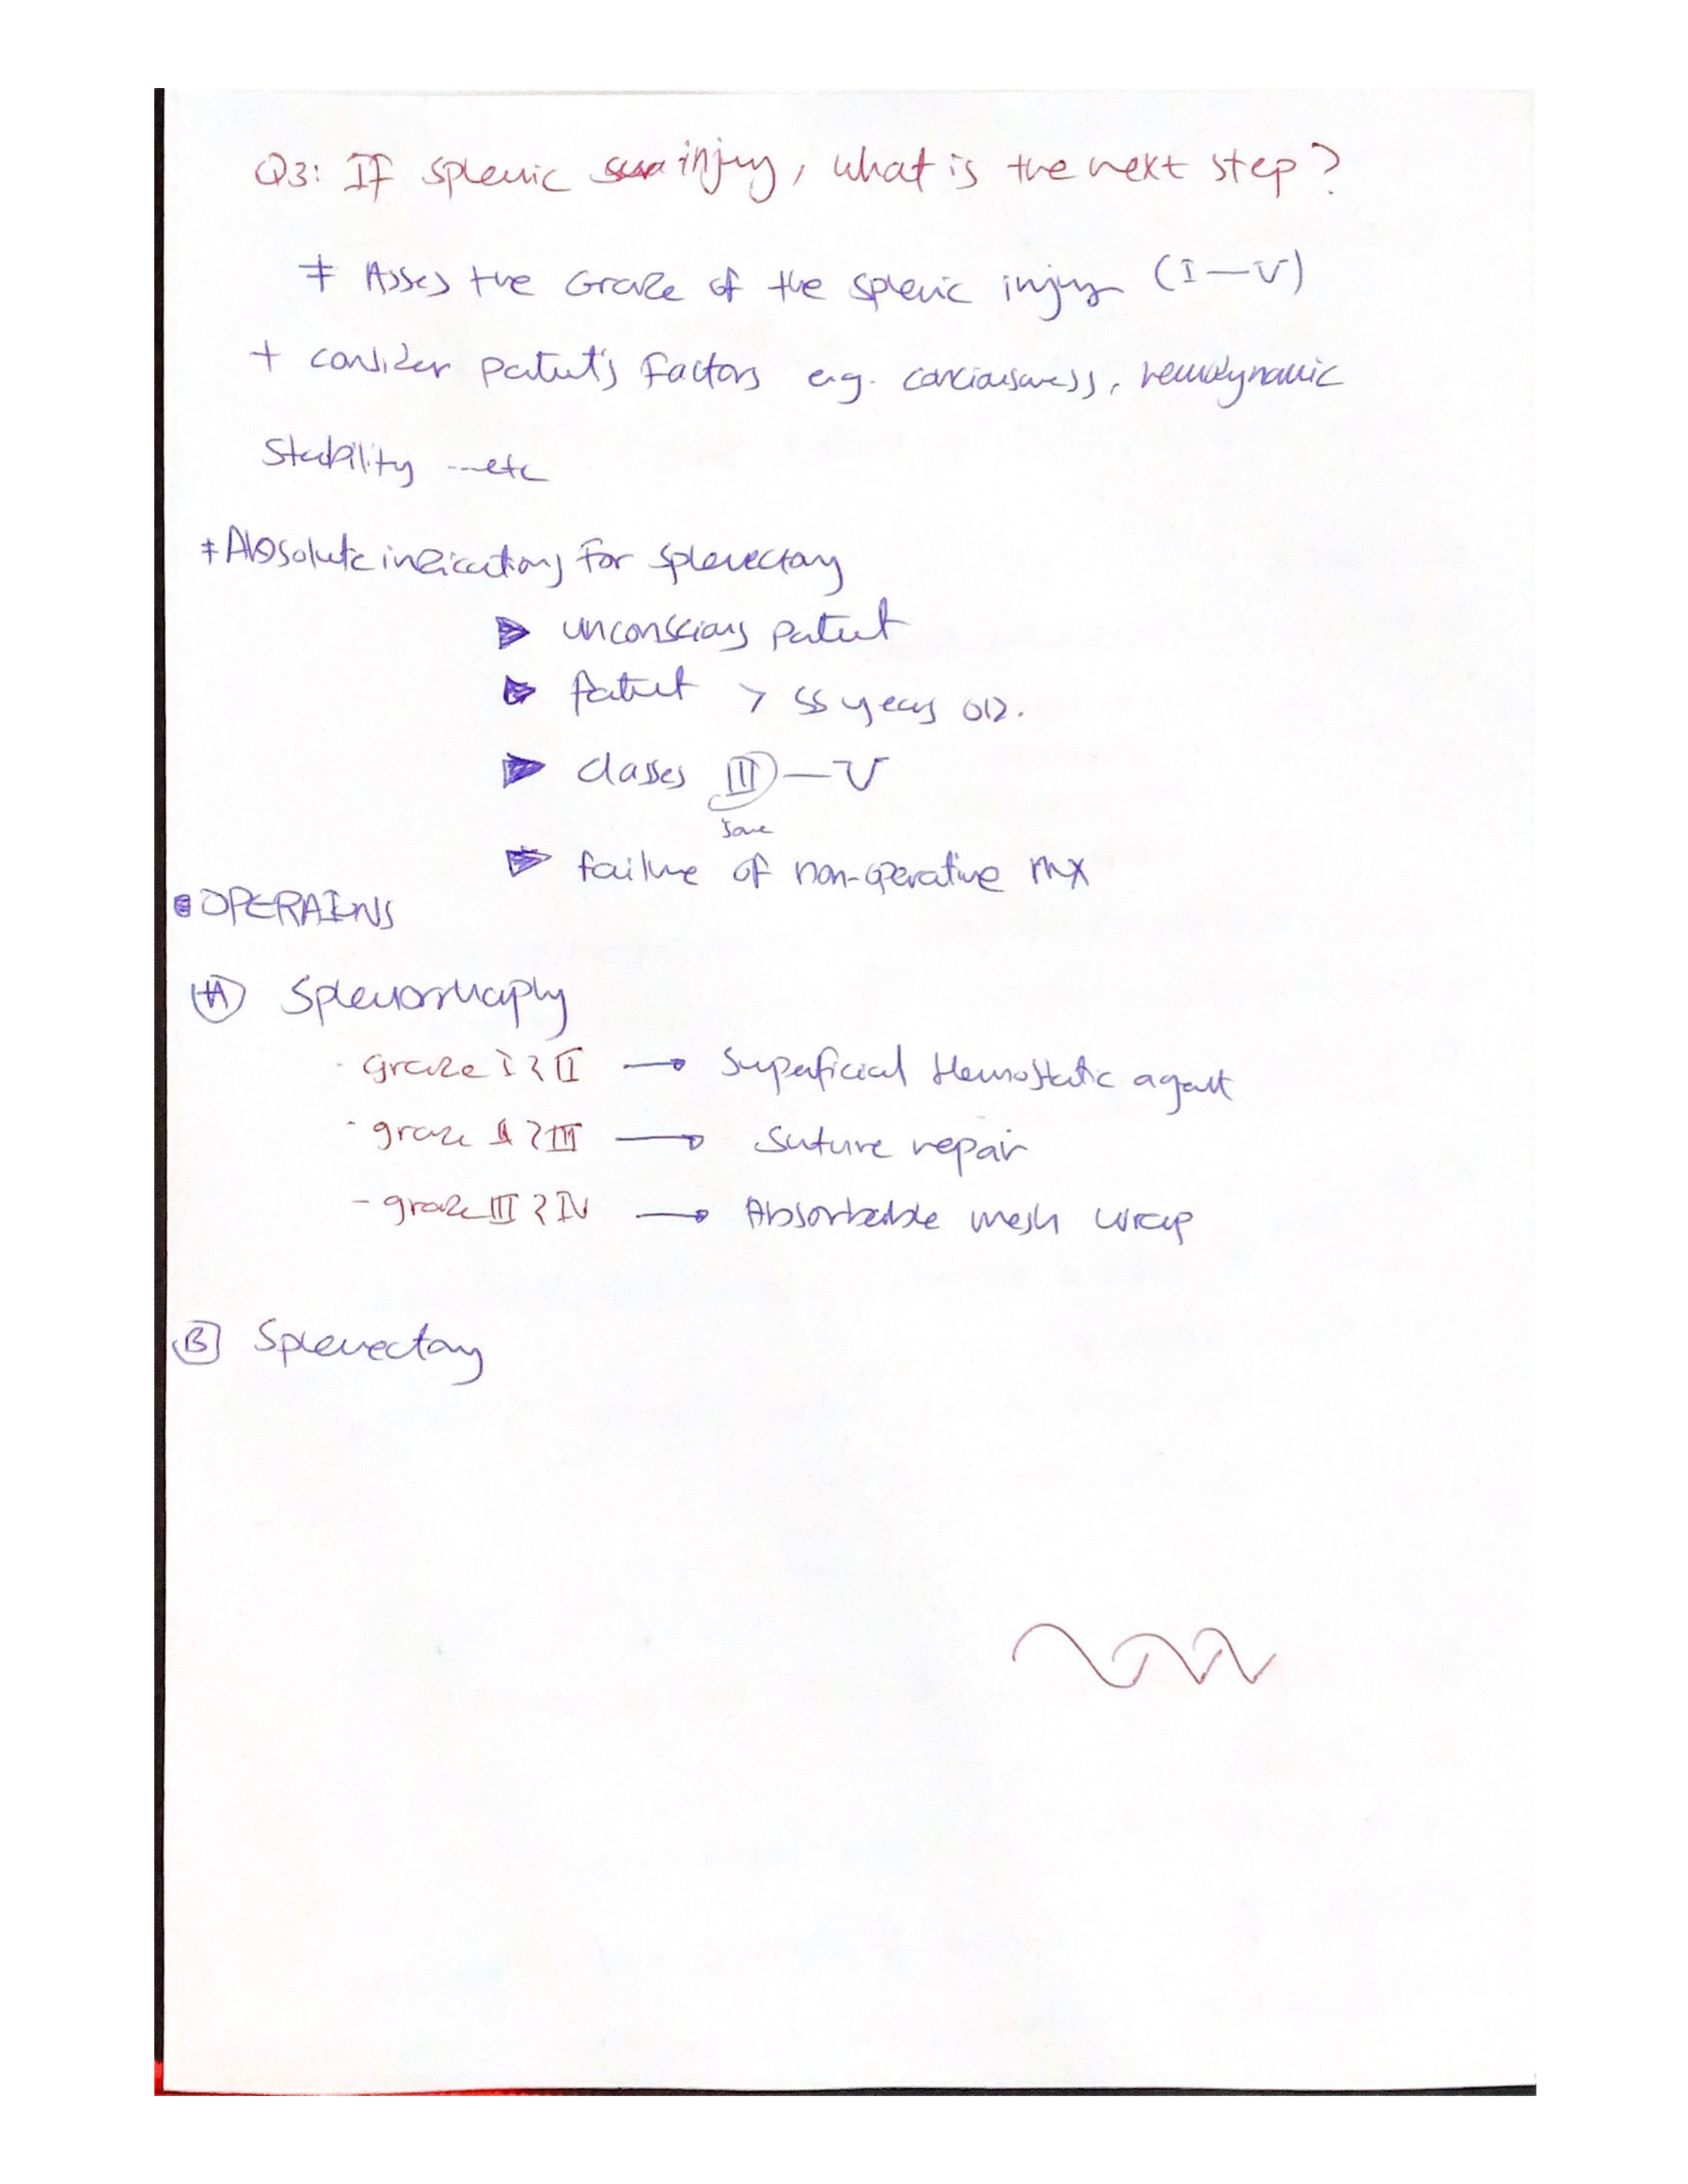 Q3: If splenic injury, what is the next step?
‡ Asses the Grade of the splenic injury (I—V)
+ consider patient's factors e.g. conciousness, hemodynamic
stability ---etc
‡ Absolute indications for splenectomy
unconscious patient
Patient > 55 years old.
classes III — V
failure of non-operative mx
OPERAIONS
A Splenorrhaphy
- grade I & II → Superficial Hemostatic agent
- grade & III → Suture repair
- grade III & IV → Absorbable mesh wrap
B Splenectomy